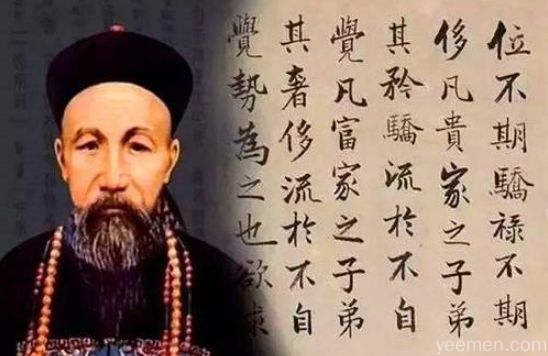 位不期驕祿不期
侈凡貴家之子弟
其矜驕流於不自
覺凡富家之子弟
其奢侈流於不自
覺勢為之也欲求
yeemen.com